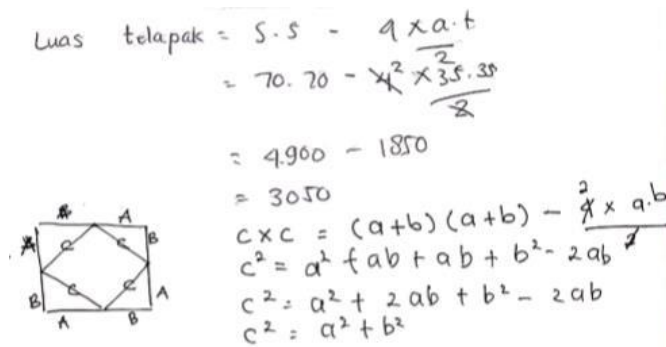 Luas telapak = S.S - 4 x a.t / 2
= 70.70 - 4² x 35.35 / 2
= 4.900 - 1850
= 3050
c x c = (a+b)(a+b) - 4² x a.b / 2
c² = a² + ab + ab + b² - 2ab
c² = a² + 2ab + b² - 2ab
c² = a² + b²
A
A B
C C
C C
B A
A B